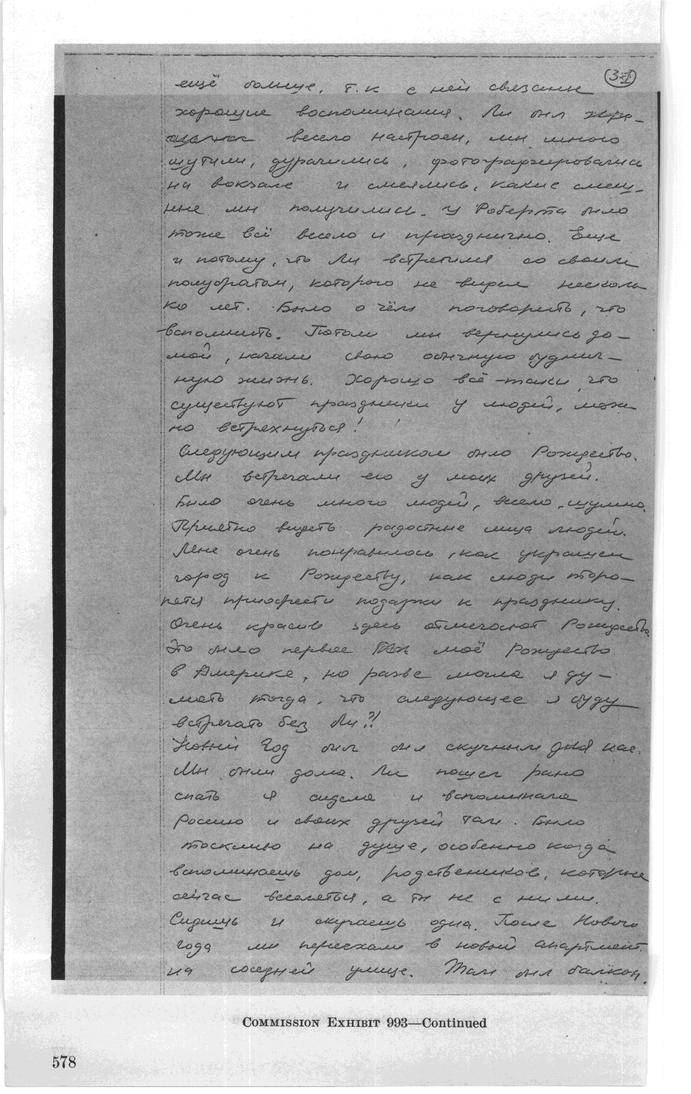 37
ещё больше, т.к с ней связанны
хорошие воспоминания. Ли был
весело настроен, мы много
шутили, дурачились, фотографировались
на вокзале и смеялись, какие смеш-
ные мы получились. У Роберта было
тоже всё весело и празднично. Еще
и потому, что Ли встретился со своим
полубратом, которого не видел несколь
ко лет. Было о чём поговорить, что
вспомнить. Потом мы вернулись до-
мой, начали свою обычную буднич-
ную жизнь. Хорошо всё-таки, что
существуют праздники у людей, мож-
но встрехнуться!
Следующим праздником было Рождество.
Мы встречали его у моих друзей.
Было очень много людей, весело, шумно.
Приятно видеть радостные лица людей.
Мне очень понравилось, как украшен
город к Рождеству, как люди торо-
пятся приобрести подарки к празднику.
Очень красиво здесь отмечают Рождество.
Это было первое моё Рождество
в Америке, но разве могла я ду-
мать тогда, что следующее я буду
встречать без Ли?!
Новый Год был был скучным для нас.
Мы были дома. Ли пошел рано
спать я сидела и вспоминала
Россию и своих друзей там. Было
тоскливо на душе, особенно когда
вспоминаешь дом, родственников, которые
сейчас веселяться, а ты не с ними.
Сидишь и скучаешь одна. После Нового
года мы переехали в новый апартмент
на соседней улице. Там был балкон.
COMMISSION EXHIBIT 993—Continued
578